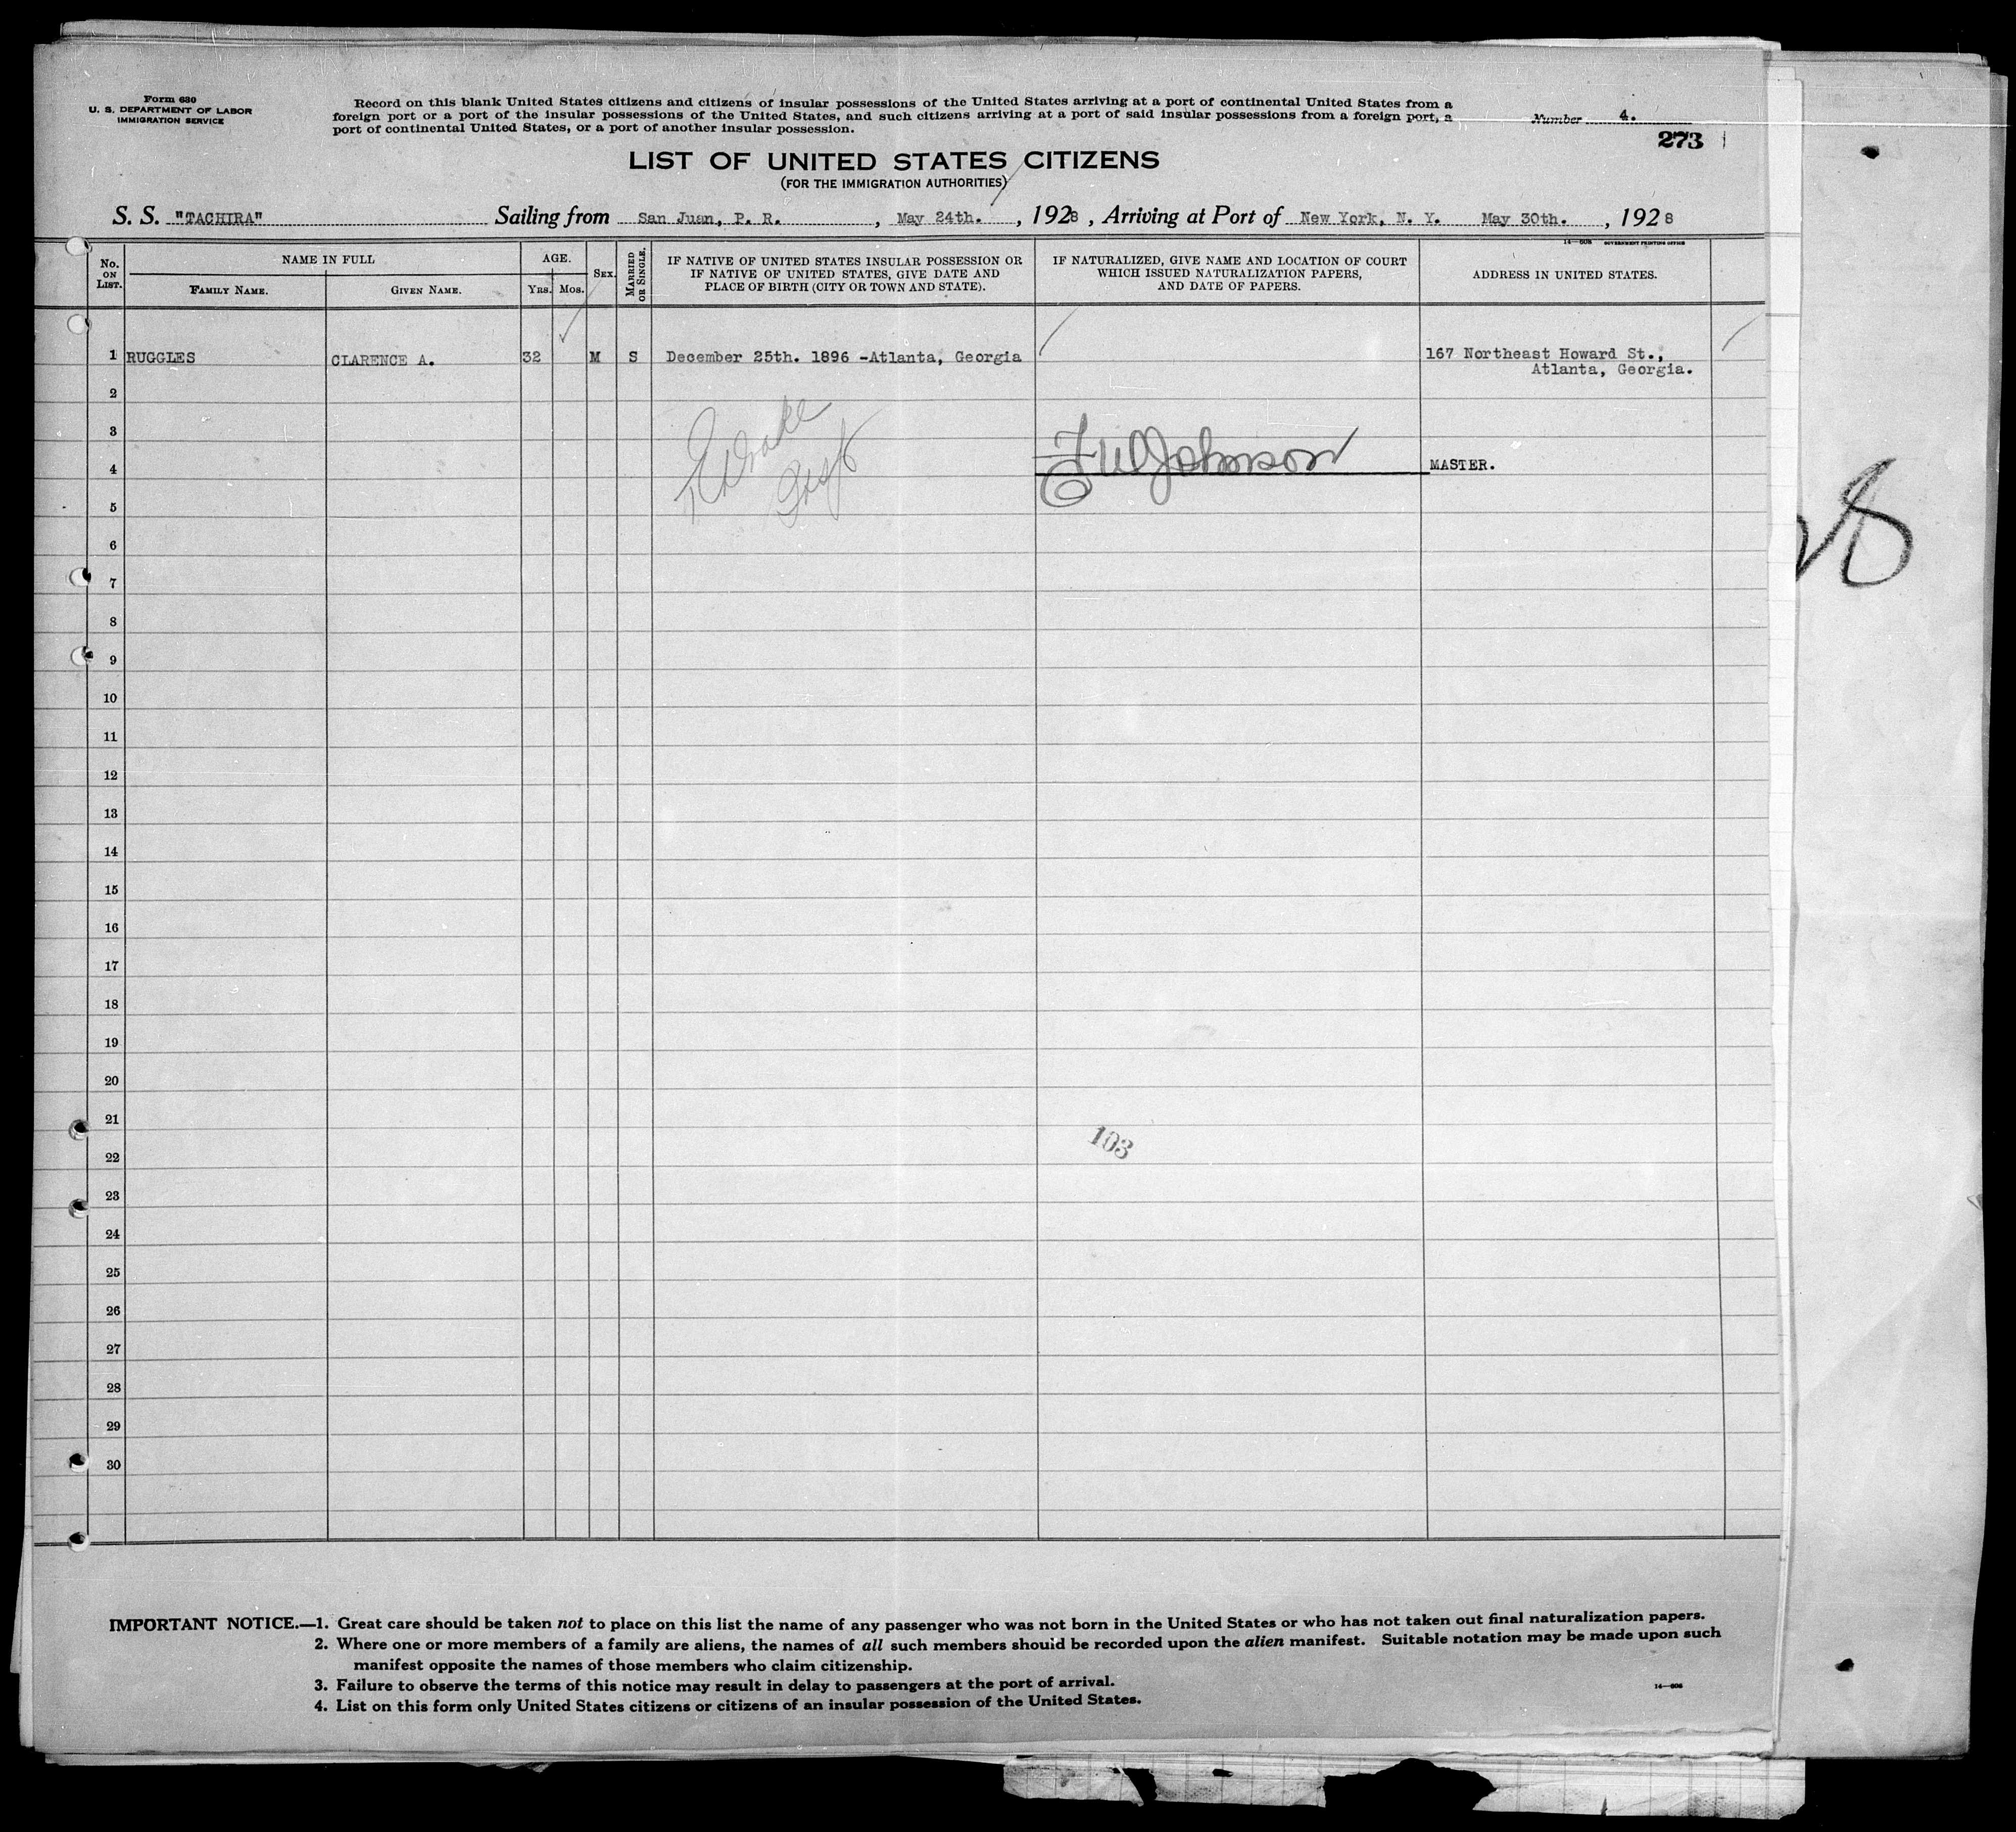 Form 630
U. S. DEPARTMENT OF LABOR
IMMIGRATION SERVICE
Record on this blank United States citizens and citizens of insular possessions of the United States arriving at a port of continental United States from a
foreign port or a port of the insular possessions of the United States, and such citizens arriving at a port of said insular possessions from a foreign port, a
port of continental United States, or a port of another insular possession.
Number 4.
273
LIST OF UNITED STATES CITIZENS
(FOR THE IMMIGRATION AUTHORITIES)
S. S. "TACHIRA" Sailing from San Juan, P. R. , May 24th. , 1928 , Arriving at Port of New York, N. Y. May 30th. , 1928
14—608 GOVERNMENT PRINTING OFFICE
No. ON LIST.
NAME IN FULL
FAMILY NAME.
GIVEN NAME.
AGE.
YRS. MOS.
SEX.
MARRIED OR SINGLE.
IF NATIVE OF UNITED STATES INSULAR POSSESSION OR
IF NATIVE OF UNITED STATES, GIVE DATE AND
PLACE OF BIRTH (CITY OR TOWN AND STATE).
IF NATURALIZED, GIVE NAME AND LOCATION OF COURT
WHICH ISSUED NATURALIZATION PAPERS,
AND DATE OF PAPERS.
ADDRESS IN UNITED STATES.
1 RUGGLES CLARENCE A. 32 M S December 25th. 1896 -Atlanta, Georgia 167 Northeast Howard St.,
Atlanta, Georgia.
2
3
Johnson
4 MASTER.
5
28
6
7
8
9
10
11
12
13
14
15
16
17
18
19
20
21
103
22
23
24
25
26
27
28
29
30
IMPORTANT NOTICE.—1. Great care should be taken not to place on this list the name of any passenger who was not born in the United States or who has not taken out final naturalization papers.
2. Where one or more members of a family are aliens, the names of all such members should be recorded upon the alien manifest. Suitable notation may be made upon such
manifest opposite the names of those members who claim citizenship.
3. Failure to observe the terms of this notice may result in delay to passengers at the port of arrival.
4. List on this form only United States citizens or citizens of an insular possession of the United States.
14—608